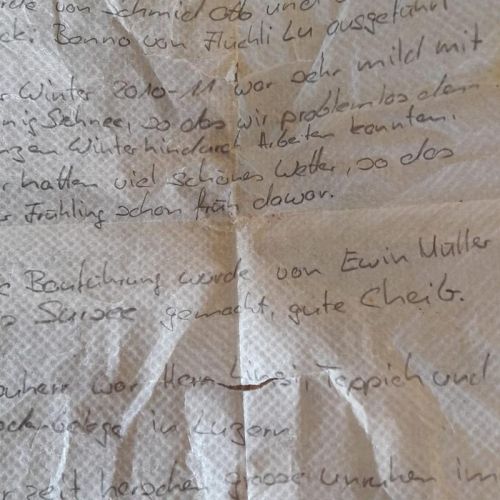 de von Schmid Otto und
cki Benno von Flüchli Lu ausgeführt
r Winter 2010-11 war sehr mild mit
nig Schnee, so das wir problemlos den
nzen Winter hindurch Arbeiten konnten.
r hatten viel schönes Wetter, so das
r Frühling schon früh da war.
e Bauführung wurde von Ewin Müller
Sursee gemacht, gute Cheib.
auherr war Herr Linsi, Teppich und
odenbeläge in Luzern
r zeit herschen grosse unruhen im